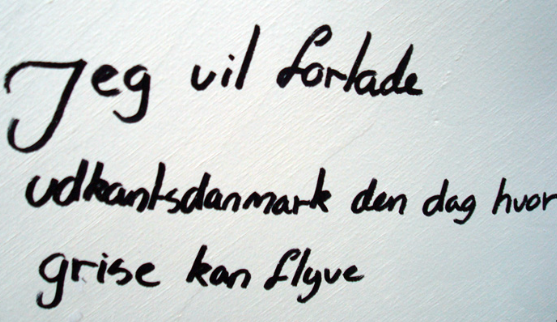 Jeg vil forlade
udkantsdanmark den dag hvor
grise kan flyve